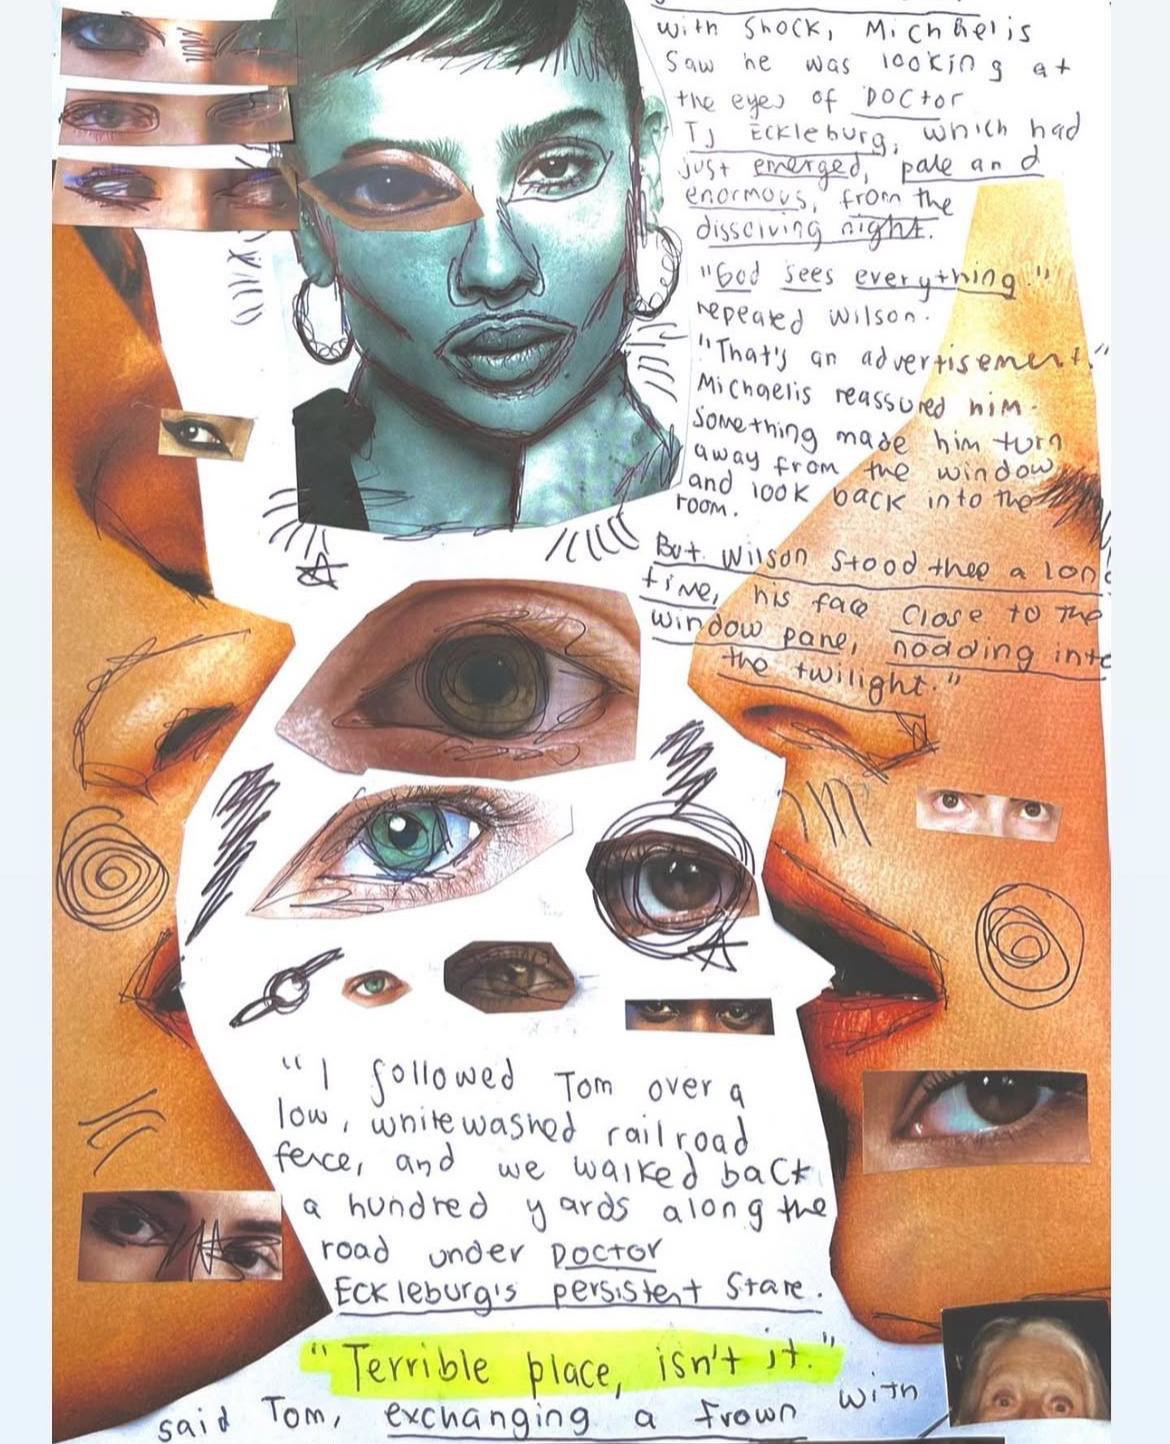 with Shock, Michaelis
Saw he was looking at
the eyes of Doctor
TJ Eckleburg, which had
just emerged, pale and
enormous, from the
dissolving night.
"God sees everything"
repeated Wilson.
"That's an advertisement."
Michaelis reassured him.
Something made him turn
away from the window,
and look back into the
room.
But Wilson stood thee a long
time, his face Close to the
window pane, nodding into
the twilight."
"I followed Tom over a
low, whitewashed railroad
fence, and we walked back
a hundred yards along the
road under Doctor
Eckleburg's persistent Stare.
"Terrible place, isn't it."
said Tom, exchanging a frown with